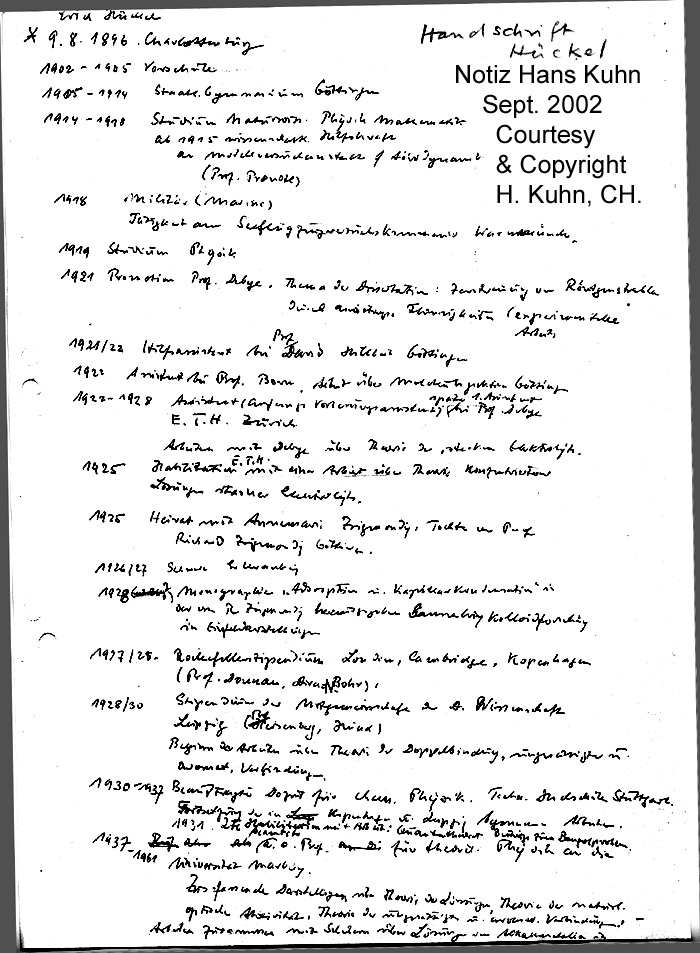 Erich Hückel
* 9.8.1896 Charlottenburg
Handschrift
Hückel
Notiz Hans Kuhn
Sept. 2002
Courtesy
& Copyright
H. Kuhn, CH.
1902 - 1905 Vorschule
1905 - 1914 Staatl. Gymnasium Göttingen
1914 - 1918 Studium Naturwiss. Physik Mathematik
ab 1915 wissenschaftl. Hilfskraft
an Modellversuchsanstalt f. Aerodynamik
(Prof. Prandtl)
1918 Militär (Marine)
Tätigkeit am Seeflugzeugversuchskommando Warnemünde.
1919 Studium Physik
1921 Promotion Prof. Debye. Thema der Dissertation: Zerstreuung von Röntgenstrahlen
durch anisotrope Flüssigkeiten (experimentelle
Arbeit)
1921/22 Hilfsassistent bei Prof. David Hilbert Göttingen
1922 Assistent bei Prof. Born, Arbeit über Göttingen
1922-1928 Assistent (anfangs Vorlesungsassistent, später 1. Assistent) bei Prof. Debye
E.T.H. Zürich
Arbeiten mit Debye über Theorie der starken Elektrolyte.
1925 Habilitation E.T.H. mit einer Arbeit über Theorie konzentrierter
Lösungen starker Elektrolyte.
1925 Heirat mit Annemarie Zsigmondy, Tochter von Prof.
Richard Zsigmondy Göttingen.
1926/27
1928 Monographie "Adsorption u. Kapillarkondensation" in
der von R. Zsigmondy herausgegebenen Sammlung Kolloidforschung
in Einzeldarstellungen
1927/28. Rockefellerstipendium London, Cambridge, Kopenhagen
(Prof. Donnan, Dirac, Bohr),
1928/30 Stipendium der Notgemeinschaft der D. Wissenschaft
Leipzig (Prof. Heisenberg, Hund)
Beginn der Arbeiten über Theorie der Doppelbindung, ungesättigter u.
aromat. Verbindungen.
1930-1937 Beauftragter Dozent für chem. Physik. Techn. Hochschule Stuttgart.
Fortsetzung der in Kopenhagen u. Leipzig begonnenen Arbeiten.
1931. 2te Habilitation mit Arbeit: Quantentheoret. Beiträge zum Benzolproblem.
1937-1961 als a.o. Prof. für theoret. Physik an die
Universität Marburg.
Zusfassende Darstellungen über Theorie der Lösungen, Theorie der natürl.
optischen Aktivität, Theorie der ungesättigten u. aromat. Verbindungen. -
Arbeiten zusammen mit Schülern über Lösung von